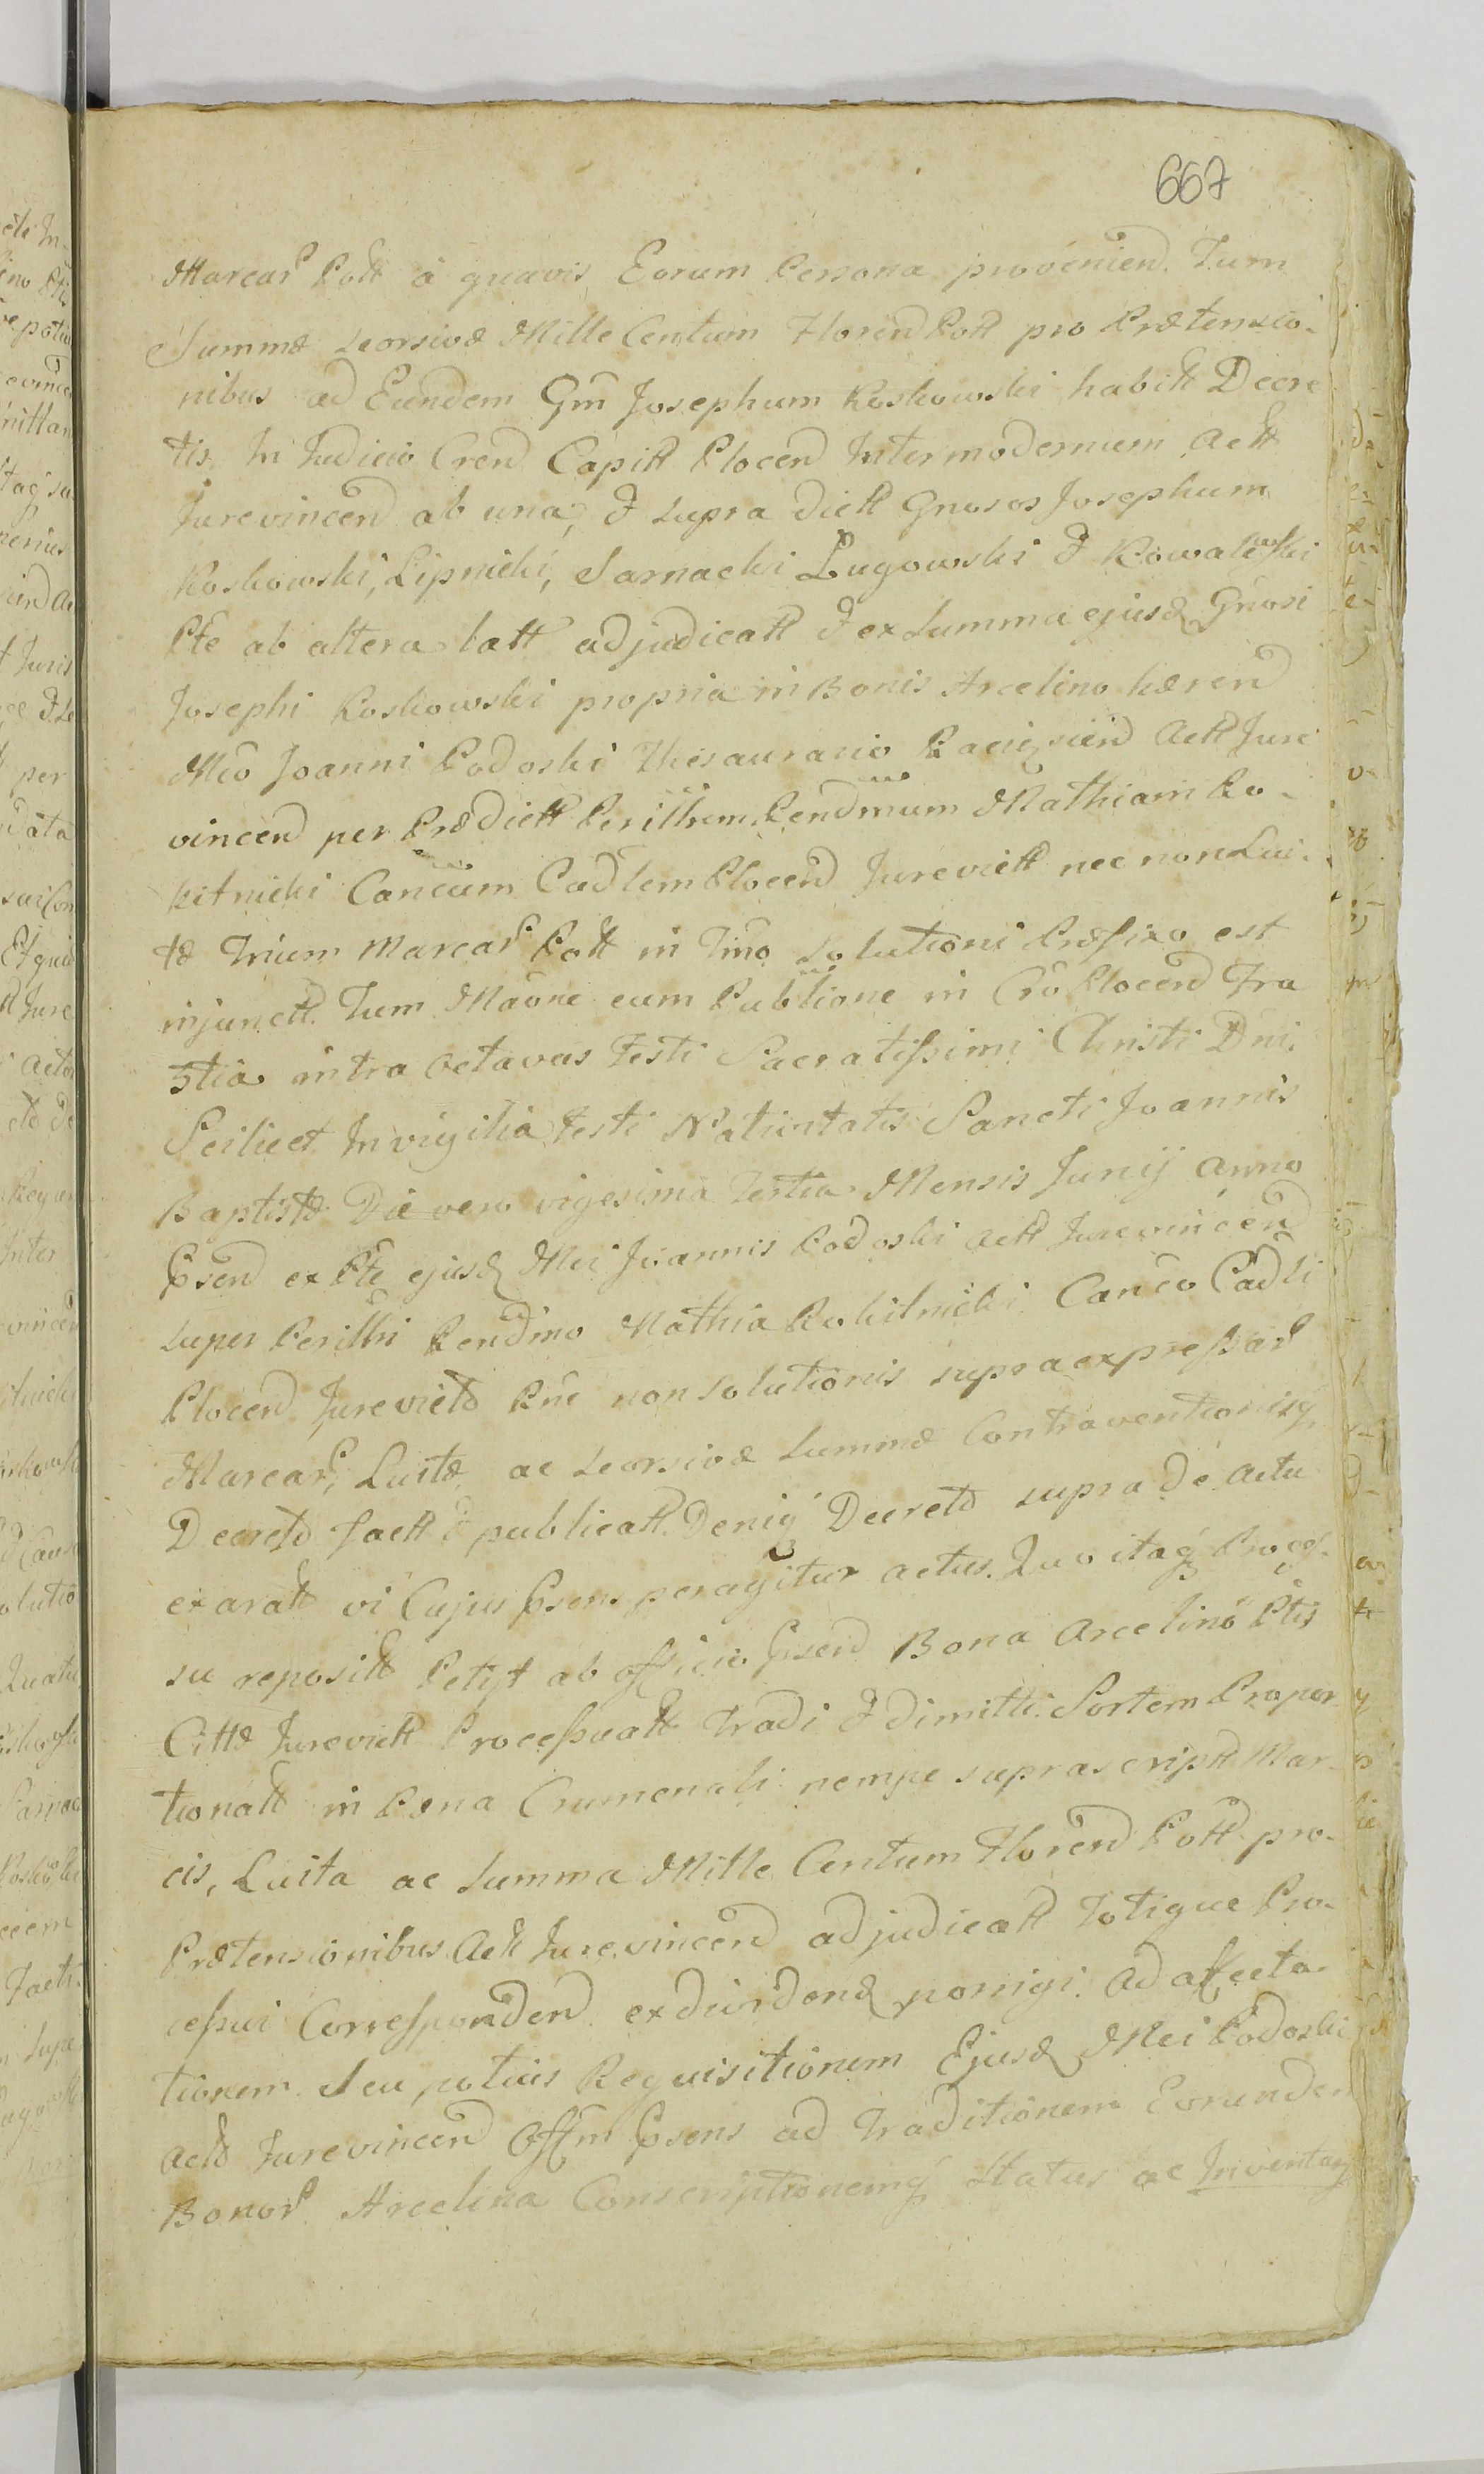 667
Marcar Poll à quavis Eorum Persona proveniend. Tum
Summæ seorsivæ Mille Centum Floren̄ Poll pro Prætensio-
nibus ad Eundem Gn̄m Josephum Koskowski habitt Decre
tis In Judicio Cren̄ Capitt Plocen̄ Inter modernum Actt
Jurevincen̄ ab una, & supra dictt Gnosos Josephum
Koskowski, Lipnicki, Sarnacki Lugowski & Kowalewski
Pte ab altera latt adjudicatt & ex Summa ejusd Gnosi
Josephi Koskowski propria in Bonis Arcelino hæren̄
Mco Joanni Podoski Thesaurario Racią̨zien̄ Actt Jure
vincen̄ per Prædictt Perillrem Rendmum Mathiam Ro-
kitnicki Cancum Cadlem Plocen̄ Jurevictt nec non Lui-
tæ Trium Marcar Poll in Tmo Solutioni Præfixo est
injunctt. Tum Maone cum Publione in Cro Plocen̄ Fra
5tia intra Octavas Festi Sacratissimi Christi Dni.
Scilicet In vigilia Festi Nativitatis Sancti Joannis
Baptistæ Die vero vigesima Tertia Mensis Junij Anno
Psen̄ ex Pte ejusd Mci Joannis Podoski Actt Jurevincen̄
super Perillri Rendmo Mathia Rokitnicki Canco Cadli
Plocen̄ Jurevicto Rne non solutionis supra expressar
Marcar, Luitæ ac seorsivæ Summæ Contraventionisq
Decreto factt & publicatt. Deniq Decreto supra de Actu
exaratt vi Cujus Psens peragitur actus. Quo itaq Proces-
su repositt Petijt ab officio Psen̄ Bona Arcelino Ptis
Cittæ Jurevictt Processuatt Tradi & dimitti. Sortem Propor
tionatt in Pæna Crumenali nempe suprascriptt Mar-
cis, Luita ac Summa Mille Centum Floren̄ Poll pro-
Prætensionibus Actt Jurevincen̄ adjudicatt Totique Pro-
cessui Corresponden̄ exdividend porrigi. Ad affecta
tionem Seu potius Requisitionem Ejusd Mci Podoski
Actt Jurevincen̄ Offm Psens ad Traditionem Eorundem
Bonor Arcelina Conscriptionemq Status ac Inventarij